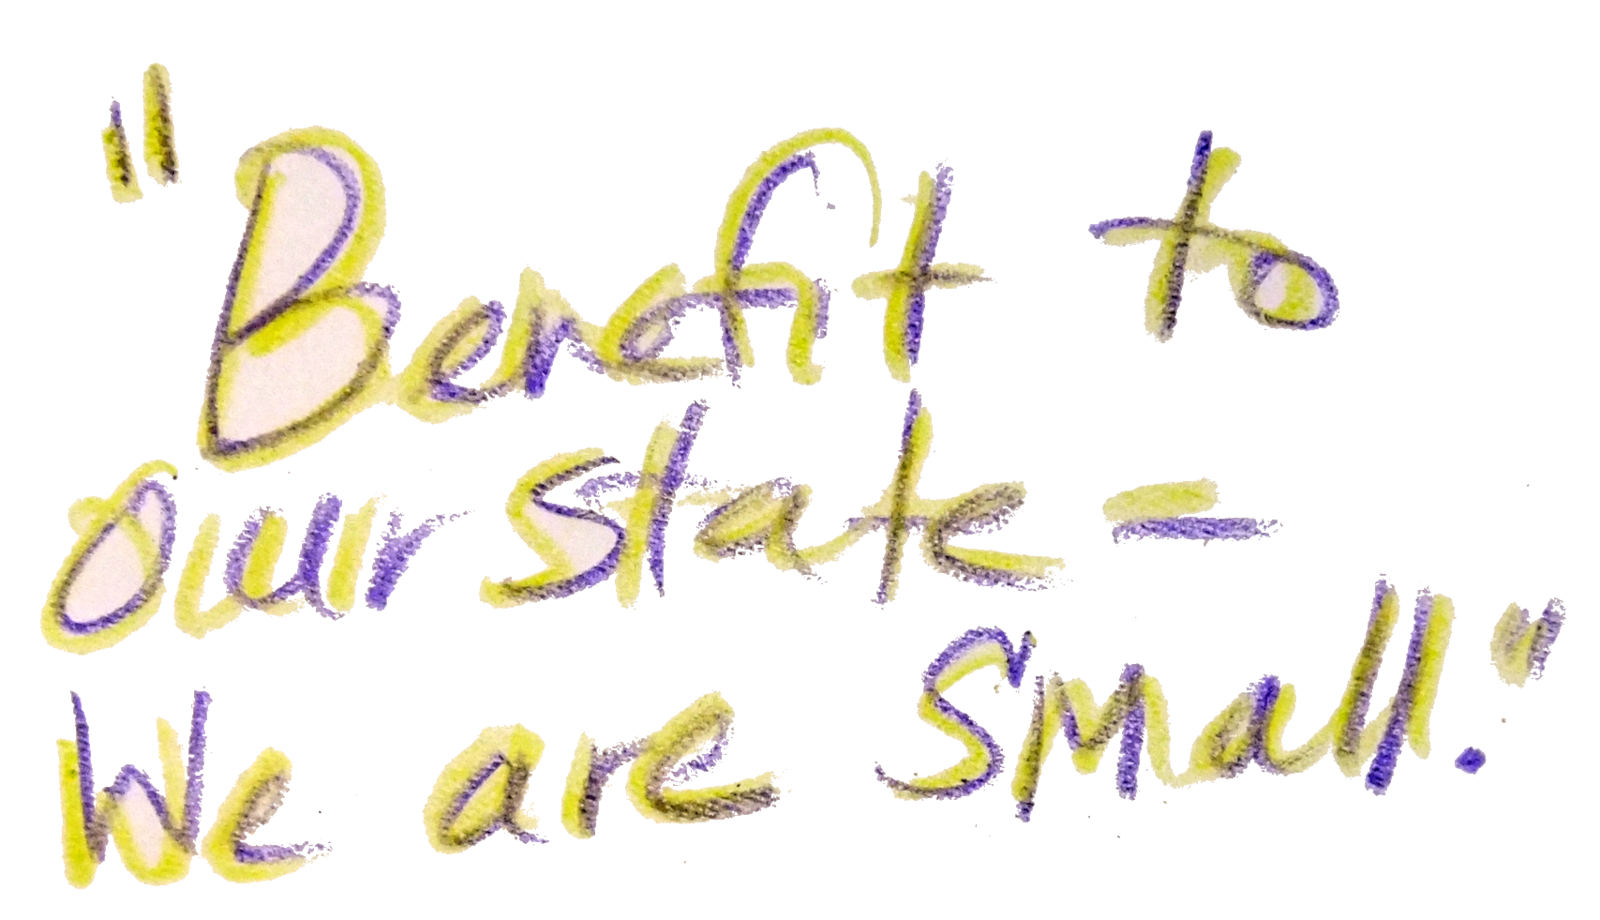 "Benefit to
our State -
We are Small."